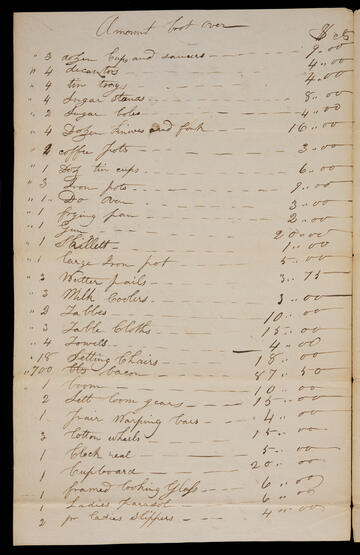 Amount brot over $ cts
" 3 dozen Cups and saucers - 9.. 00
" 4 decantors - 4.. 00
" 4 tin trays - 4.. 00
" 4 Sugar Stands - 8.. 00
" 2 Sugar boles - 4.. 00
" 4 Dozen knives and fork 16.. 00
" 2 coffee pots - 3.. 00
" 1 Doz tin cups - 6.. 00
" 3 Iron pots - 9.. 00
" 1 Do oven - 3.. 00
" 1 frying pan - 2.. 00
" 1 Gun - 20.. 00
" 1 Skillett - 1.. 00
" 1 large Iron pot 5.. 00
" 3 Watter pails - 3.. 75
" 3 Milk Coolers - 3.. 00
" 2 Tables 10.. 00
" 3 Table Cloths - 15.. 00
" 4 Towels - 4.. 00
" 18 Setting Chairs - 18.. 00
" 700 lbs bacon - 87.. 50
1 loom - 10.. 00
2 Sett loom gears - 15.. 00
1 pair Warping bars - 4.. 00
3 Cotton wheels - 15.. 00
1 Clock real 5.. 00
1 Cupboard - 20.. 00
1 framed looking Glass - 6.. 00
1 Ladies parasol - 6.. 00
2 pr ladies Slippers - 4.. 00